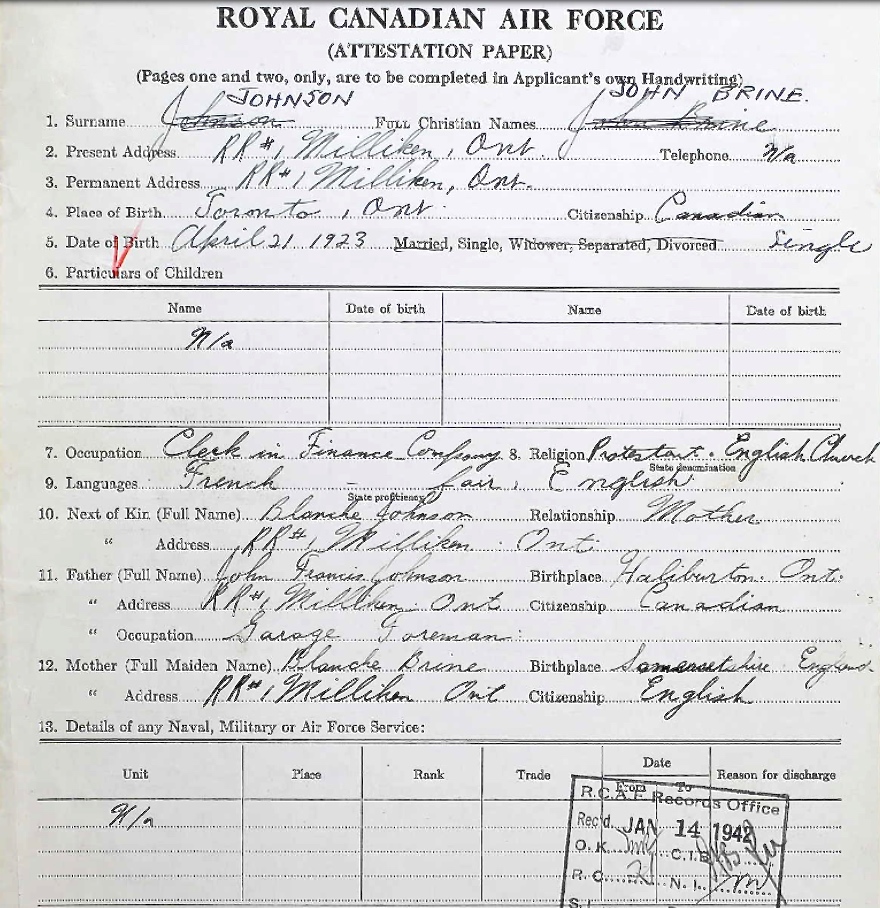 ROYAL CANADIAN AIR FORCE
(ATTESTATION PAPER)
(Pages one and two, only, are to be completed in Applicant's own Handwriting)
JOHNSON JOHN BRINE.
1. Surname Johnson Full Christian Names John Brine
2. Present Address RR#1 Milliken, Ont. Telephone N/a
3. Permanent Address RR#1 Milliken, Ont.
4. Place of Birth Toronto, Ont. Citizenship Canadian
5. Date of Birth April 21 1923 Married, Single, Widower, Separated, Divorced Single
6. Particulars of Children
Name Date of birth Name Date of birth
N/a
7. Occupation Clerk in Finance Company 8. Religion Protestant. English Church
State denomination
9. Languages French - fair, English
State proficiency
10. Next of Kin (Full Name) Blanche Johnson Relationship Mother
" Address RR#1 Milliken Ont
11. Father (Full Name) John Francis Johnson Birthplace Haliburton. Ont.
" Address RR#1 Milliken. Ont Citizenship Canadian
" Occupation Garage Foreman
12. Mother (Full Maiden Name) Blanche Brine Birthplace Somersetshire England
" Address RR#1 Milliken Ont Citizenship English
13. Details of any Naval, Military or Air Force Service:
Unit Place Rank Trade Date From To Reason for discharge
N/a
R.C.A.F. Records Office
Rec'd. JAN 14 1942
O.K. C.I.B.
R.C. N.I.